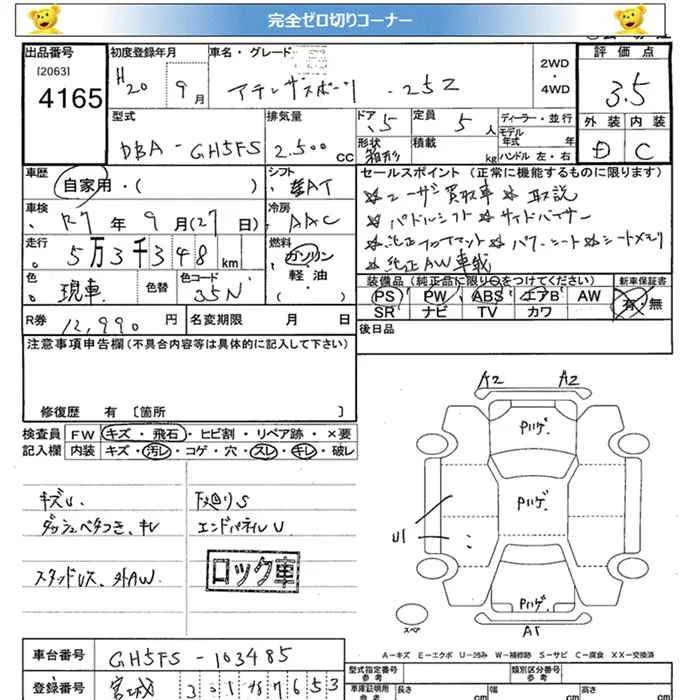 完全ゼロ切りコーナー
出品番号 初度登録年月 車名・グレード 評価点
[2063]
4165 H20 9月 アテンザスポーツ ・25Z 2WD・4WD 3.5
型式 排気量 ドア 定員 ディーラー・並行 外装 内装
DBA-GH5FS 2.500CC 5 5人 モデル年式 年 D C
形状 箱形 積載 kg ハンドル 左・右
車歴 自家用・( ) シフト AT セールスポイント(正常に機能するものに限ります)
☆ユーザ買取車☆取説
車検 R7年9月(27日) 冷房 AAC ☆パドルシフト☆サイドバイザー
走行 5万3千348km 燃料 ガソリン ☆純正フロアマット☆パワーシート☆シートメモリ
軽油 ☆純正AW車載
色 現車 色替 色コード 35N ( ) 装備品(純正品に限り○をつけてください) 新車保証書
PS PW ABS エアB AW 有・無
SR ナビ TV カワ
R券 12,990円 名変期限 月 日 後日品
注意事項申告欄(不具合内容等は具体的に記入して下さい)
修復歴 有 〔箇所 〕
検査員 FW キズ・飛石・ヒビ割・リペア跡・×要
記入欄 内装 キズ・汚レ・コゲ・穴・スレ・キレ・破レ
A2 A2
Pハゲ
キズU 下廻りS
Pハゲ
ダッシュベタつき、キレ エンドパネルU
U1
スタッドレス、外AW ロック車
Pハゲ
スペア A1
A-キズ E-エクボ U-凹み W-補修跡 S-サビ C-腐食 XX-交換済
車台番号 GH5FS-103485
型式指定番号 参考 類別区分番号 参考
登録番号 宮城
車庫証明用 参考 長さ cm 幅 cm 高さ cm